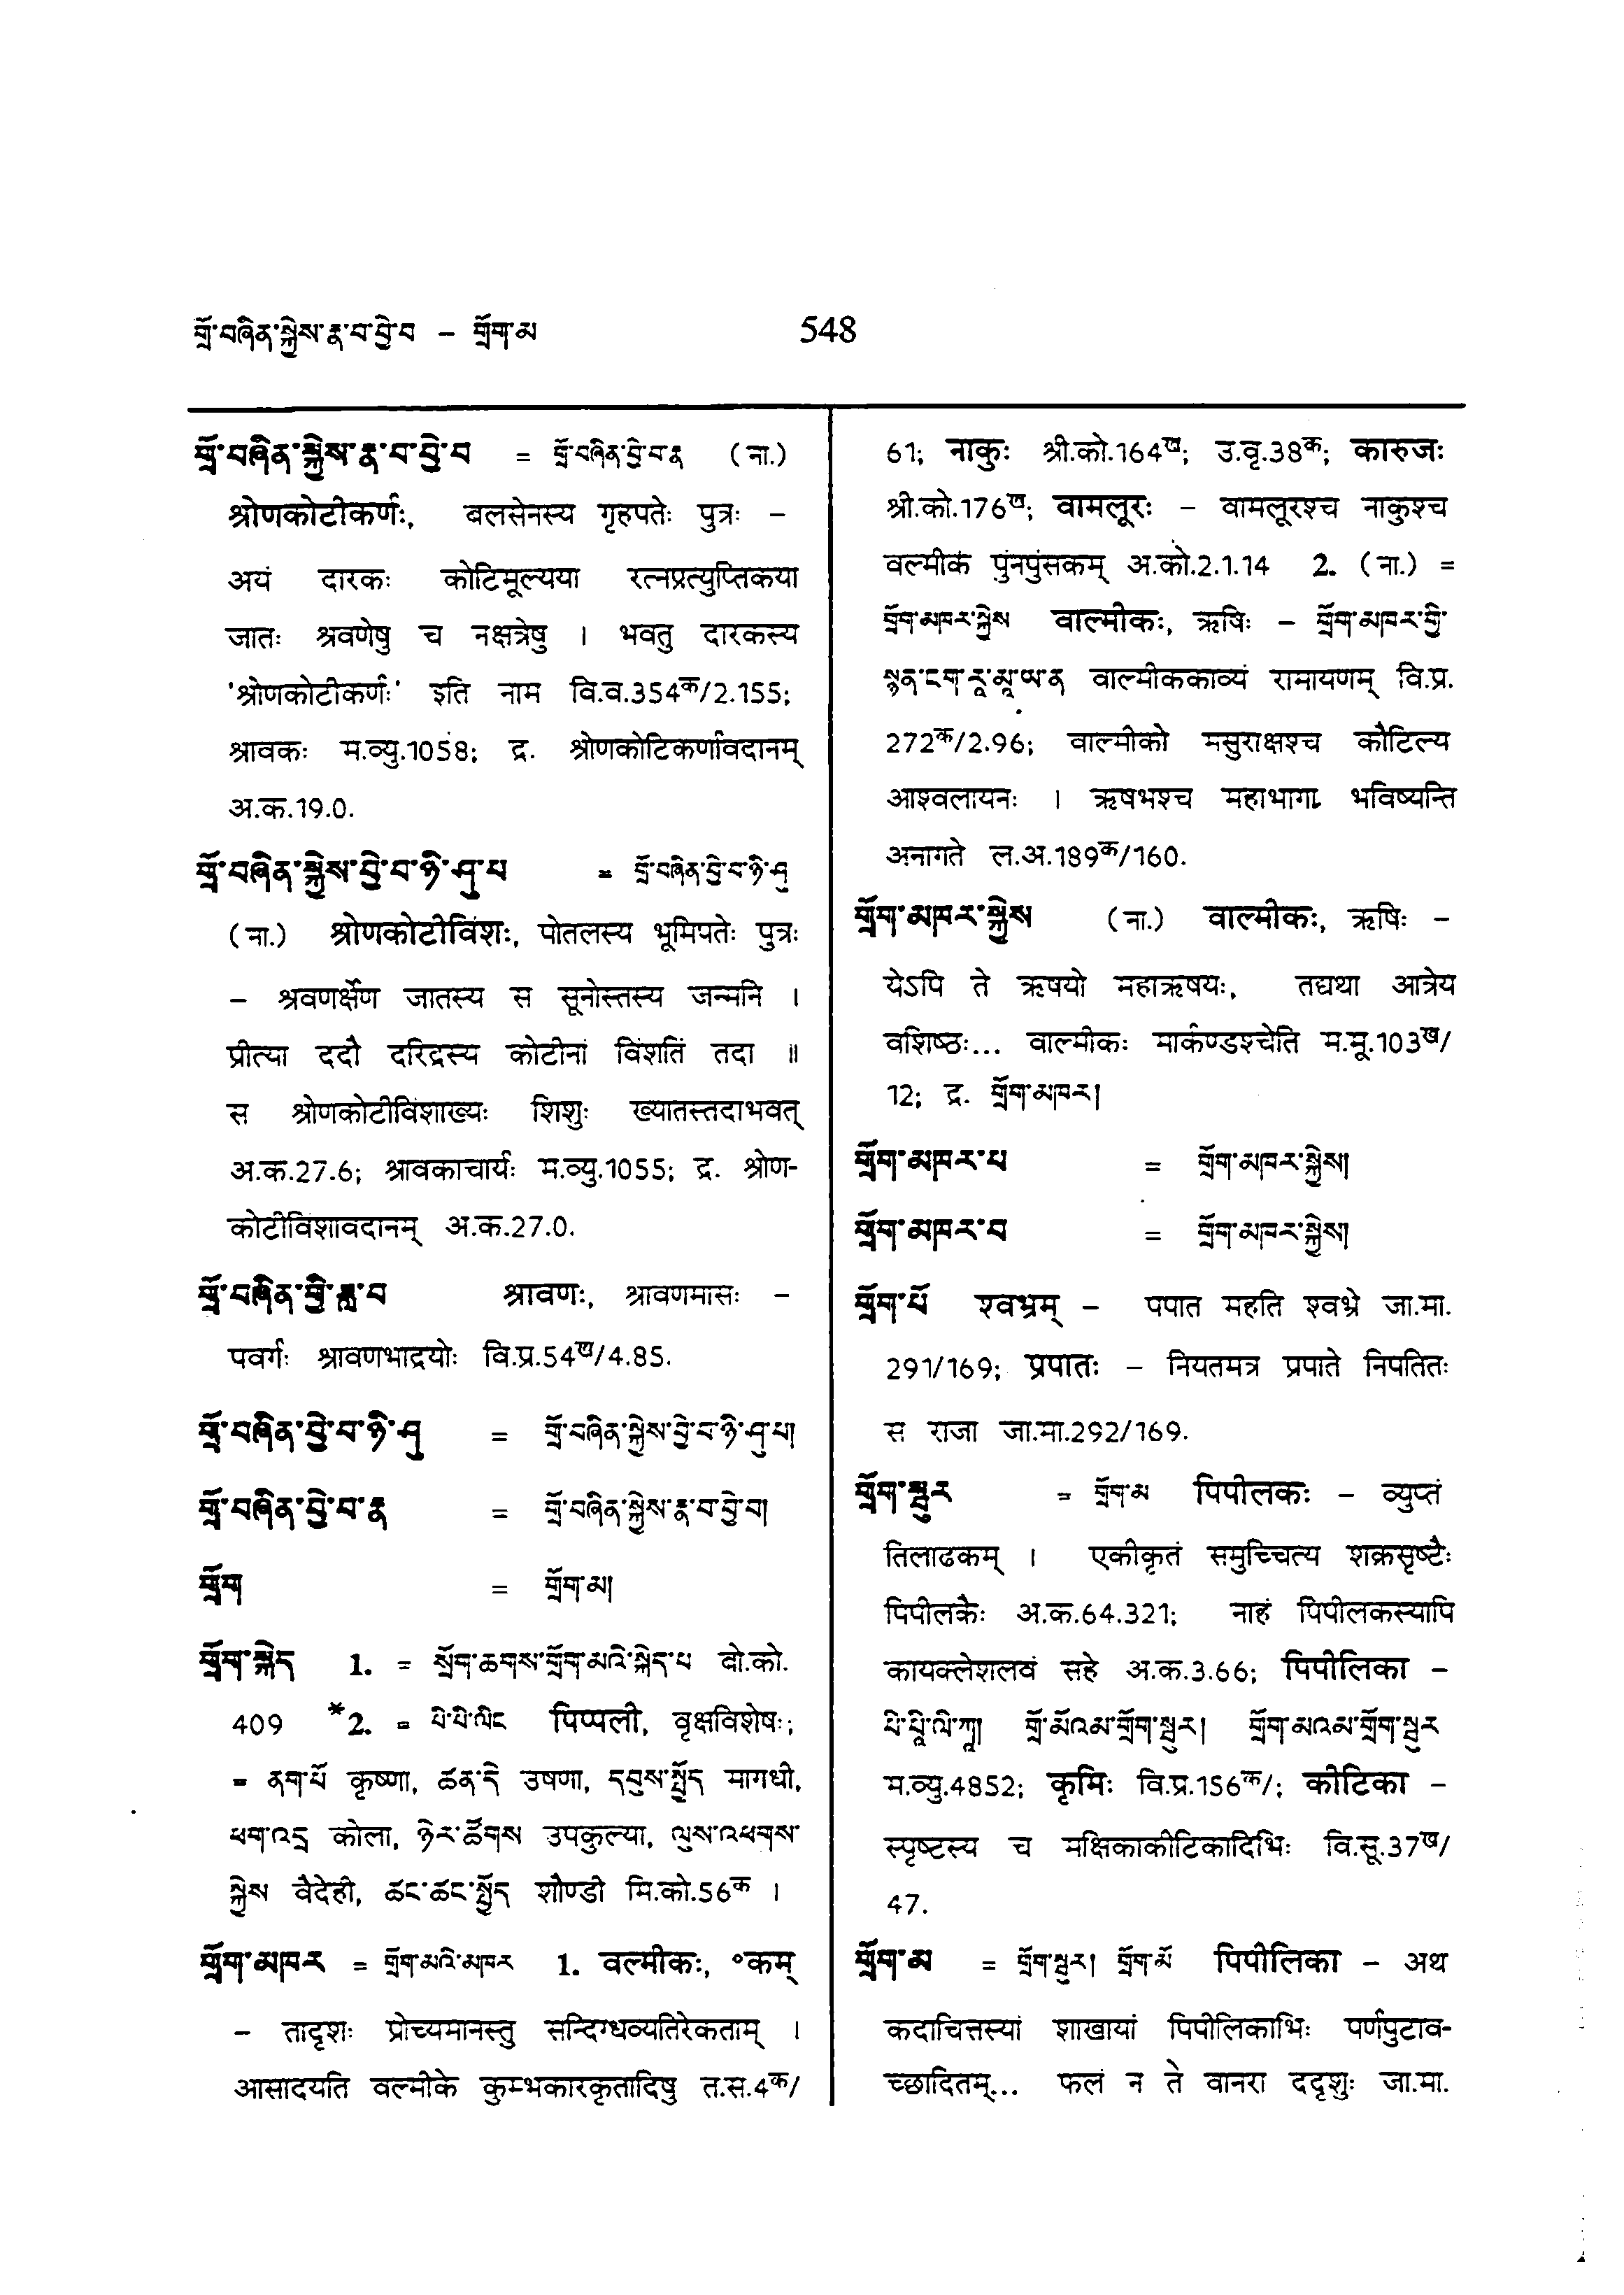 གྲོ་བཞིན་སྐྱེས་རྣ་བ་བྱེ་བ – གྲོག་མ 548
གྲོ་བཞིན་སྐྱེས་རྣ་བ་བྱེ་བ = གྲོ་བཞིན་བྱེ་བ་རྣ (ना.)
श्रोणकोटीकर्णः, बलसेनस्य गृहपतेः पुत्रः –
अयं दारकः कोटिमूल्यया रत्नप्रत्युप्तिकया
जातः श्रवणेषु च नक्षत्रेषु । भवतु दारकस्य
'श्रोणकोटीकर्णः' इति नाम वि.व.354क/2.155;
श्रावकः म.व्यु.1058; द्र. श्रोणकोटिकर्णावदानम्
अ.क.19.0.
གྲོ་བཞིན་སྐྱེས་བྱེ་བ་ཉི་ཤུ་པ = གྲོ་བཞིན་བྱེ་བ་ཉི་ཤུ
(ना.) श्रोणकोटीविंशः, पोतलस्य भूमिपतेः पुत्रः
– श्रवणर्क्षेण जातस्य स सूनोस्तस्य जन्मनि ।
प्रीत्या ददौ दरिद्रस्य कोटीनां विंशतिं तदा ॥
स श्रोणकोटीविंशाख्यः शिशुः ख्यातस्तदाभवत्
अ.क.27.6; श्रावकाचार्यः म.व्यु.1055; द्र. श्रोण-
कोटीविंशावदानम् अ.क.27.0.
གྲོ་བཞིན་གྱི་ཟླ་བ श्रावणः, श्रावणमासः –
पवर्गः श्रावणभाद्रयोः वि.प्र.54ख/4.85.
གྲོ་བཞིན་བྱེ་བ་ཉི་ཤུ = གྲོ་བཞིན་སྐྱེས་བྱེ་བ་ཉི་ཤུ་པ།
གྲོ་བཞིན་བྱེ་བ་རྣ = གྲོ་བཞིན་སྐྱེས་རྣ་བ་བྱེ་བ།
གྲོག = གྲོག་མ།
གྲོག་སྐེད 1. = སྲོག་ཆགས་གྲོག་མའི་སྐེད་པ बो.को.
409 *2. = པི་པི་ལིང པिप्पली, वृक्षविशेषः;
= ནག་པོ कृष्णा, ཚན་དེ उषणा, དབུས་སྤྱོད मागधी,
ཕག་འདྲ कोला, ཉེར་ཚོགས उपकुल्या, ལུས་འཕགས་
སྐྱེས वैदेही, ཚང་ཚང་སྤྱོད शौण्डी मि.को.56क ।
གྲོག་མཁར = གྲོག་མའི་མཁར 1. वल्मीकः, ॰कम्
– तादृशः प्रोच्यमानस्तु सन्दिग्धव्यतिरेकताम् ।
आसादयति वल्मीके कुम्भकारकृतादिषु त.स.4क/
61; नाकुः श्री.को.164ख; उ.वृ.38क; कारुजः
श्री.को.176ख; वामलूरः – वामलूरश्च नाकुश्च
वल्मीकं पुंनपुंसकम् अ.को.2.1.14 2. (ना.) =
གྲོག་མཁར་སྐྱེས वाल्मीकः, ऋषिः – གྲོག་མཁར་གྱི་
སྙན་ངག་རཱ་མཱ་ཡ་ན वाल्मीककाव्यं रामायणम् वि.प्र.
272क/2.96; वाल्मीको मसुराक्षश्च कौटिल्य
आश्वलायनः । ऋषभश्च महाभागा भविष्यन्ति
अनागते ल.अ.189क/160.
གྲོག་མཁར་སྐྱེས (ना.) वाल्मीकः, ऋषिः –
येऽपि ते ऋषयो महाऋषयः, तद्यथा आत्रेय
वशिष्ठः... वाल्मीकः मार्कण्डश्चेति म.मू.103ख/
12; द्र. གྲོག་མཁར།
གྲོག་མཁར་པ = གྲོག་མཁར་སྐྱེས།
གྲོག་མཁར་བ = གྲོག་མཁར་སྐྱེས།
གྲོག་པོ श्वभ्रम् – पपात महति श्वभ्रे जा.मा.
291/169; प्रपातः – नियतमत्र प्रपाते निपतितः
स राजा जा.मा.292/169.
གྲོག་སྦུར = གྲོག་མ पिपीलकः – व्युप्तं
तिलाढकम् । एकीकृतं समुच्चित्य शक्रसृष्टैः
पिपीलकैः अ.क.64.321; नाहं पिपीलकस्यापि
कायक्लेशलवं सहे अ.क.3.66; पिपीलिका –
པི་པཱི་ལི་ཀཱ། གྲོ་མོའམ་གྲོག་སྦུར། གྲོག་མའམ་གྲོག་སྦུར
म.व्यु.4852; कृमिः वि.प्र.156क/; कीटिका –
स्पृष्टस्य च मक्षिकाकीटिकादिभिः वि.सू.37ख/
47.
གྲོག་མ = གྲོག་སྦུར། གྲོག་མོ पिपीलिका – अथ
कदाचित्तस्यां शाखायां पिपीलिकाभिः पर्णपुटाव-
च्छादितम्... फलं न ते वानरा ददृशुः जा.मा.